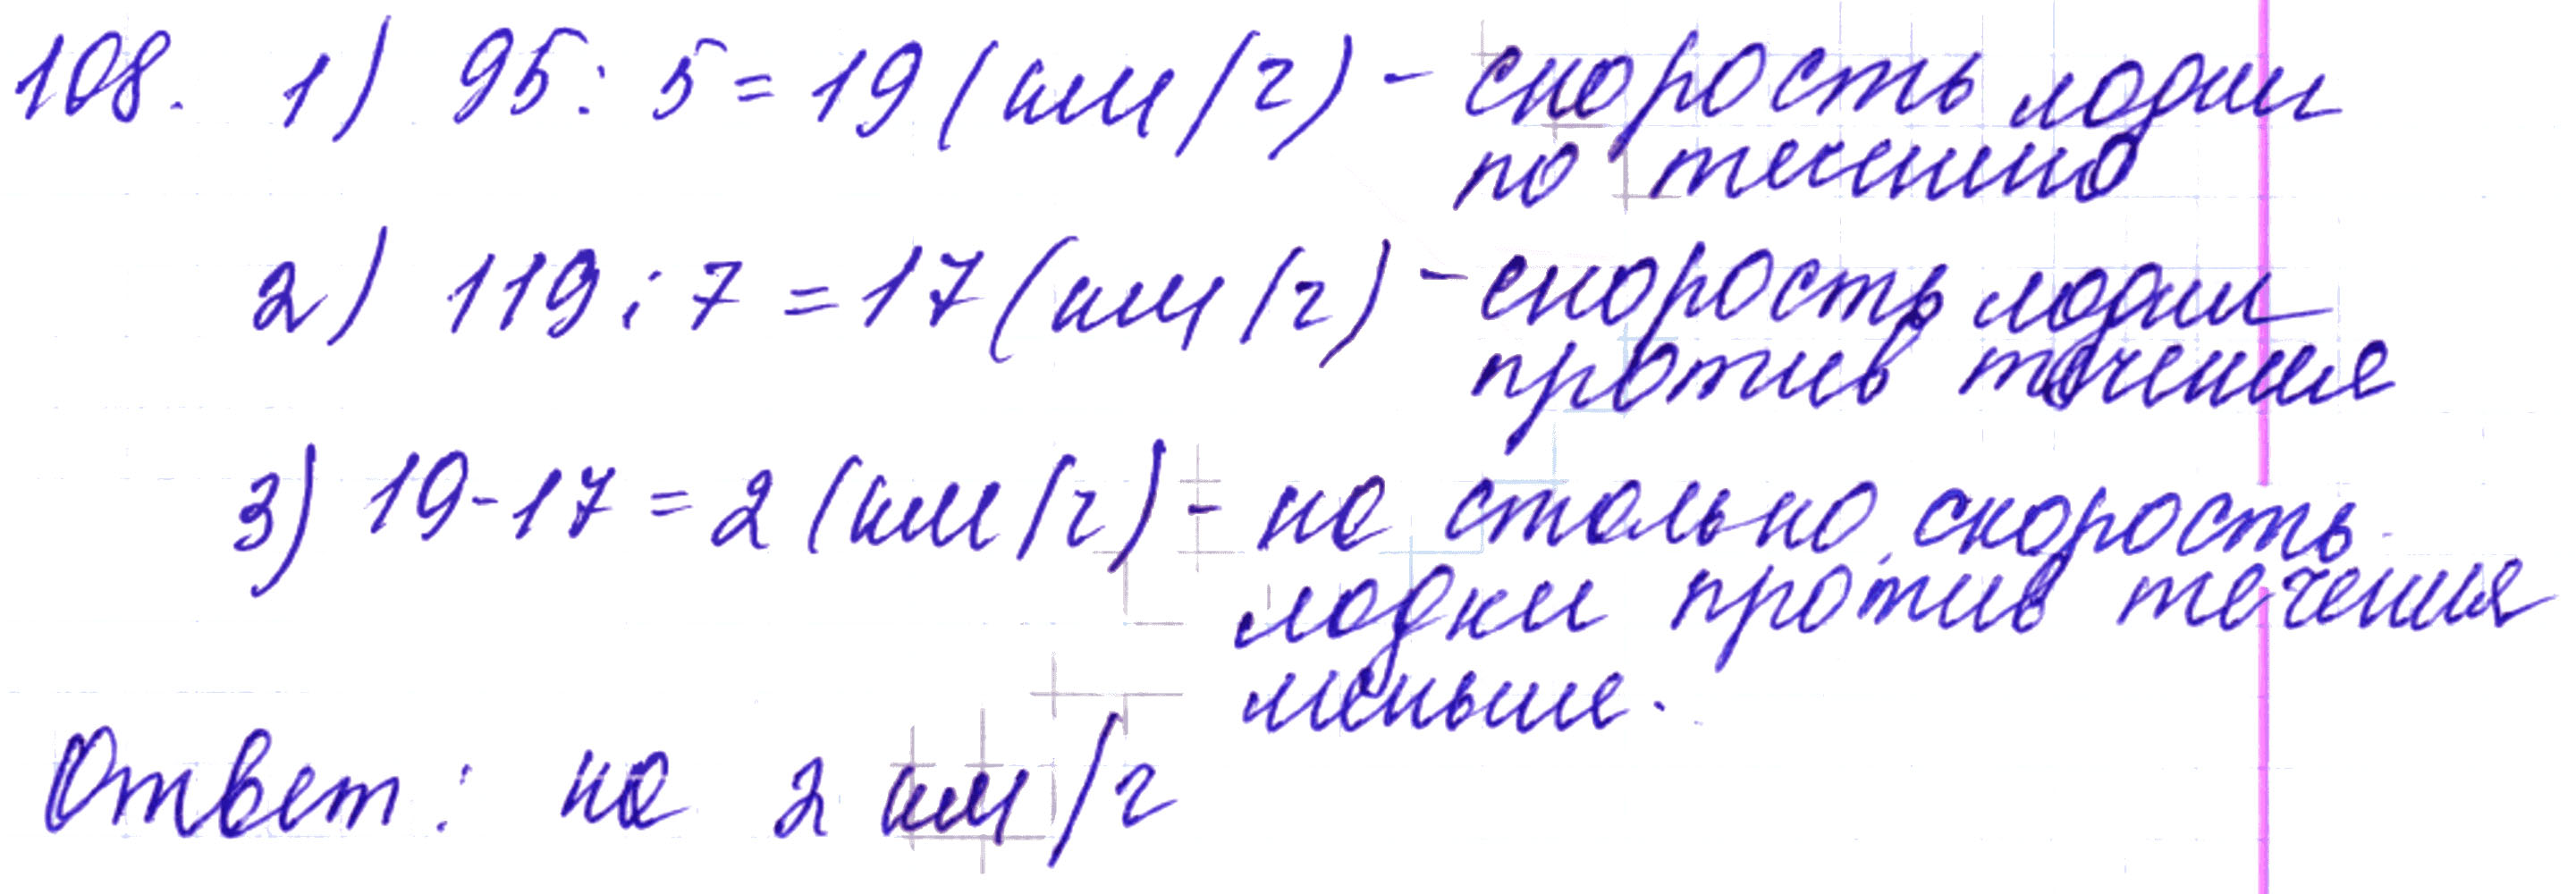 108. 1) 95 : 5 = 19 (км/г) - скорость лодки
по течению
2) 119 : 7 = 17 (км/г) - скорость лодки
против течения
3) 19 - 17 = 2 (км/г) - на столько скорость
лодки против течения
меньше.
Ответ: на 2 км/г